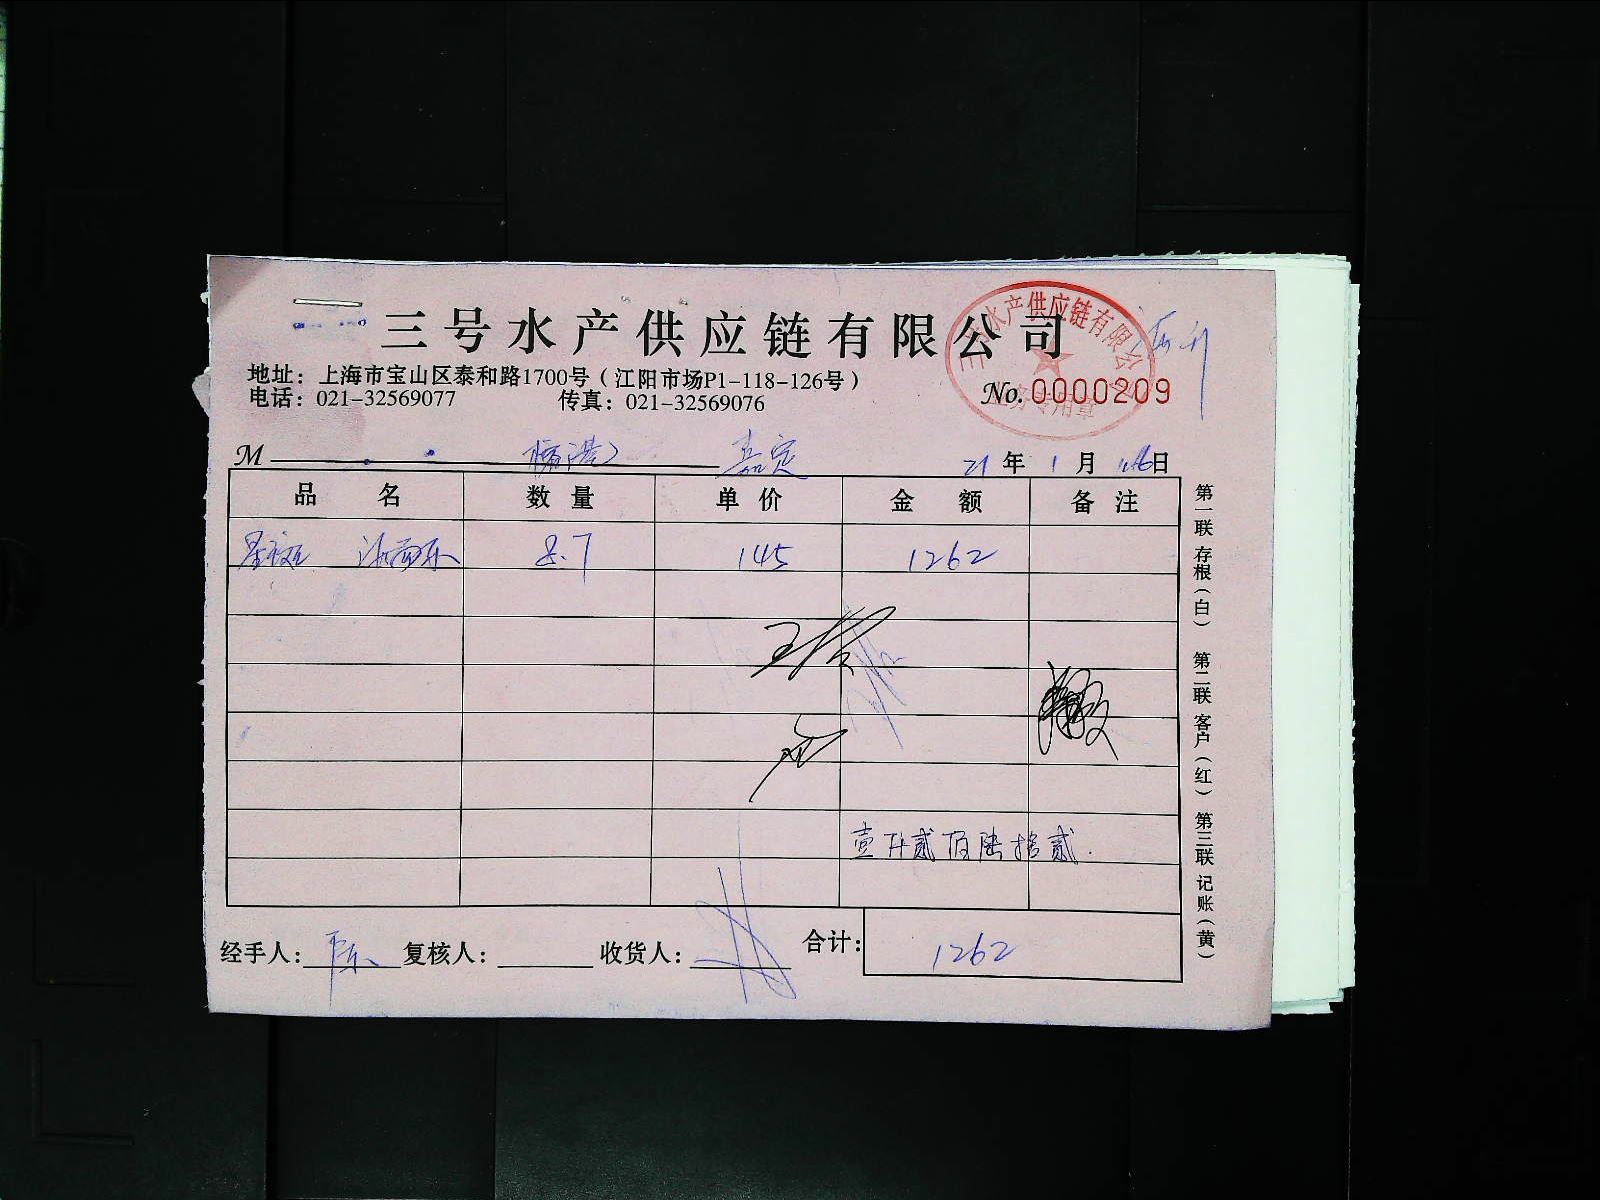 三号水产供应链有限公司
三号水产供应链有限公司
专用章
地址：上海市宝山区泰和路1700号（江阳市场P1-118-126号）
电话：021-32569077 传真：021-32569076
No. 0000209
M 嘉定 21年1月16日
品名 数量 单价 金额 备注
8.7 145 1262
壹仟贰佰陆拾贰.
经手人： 陈 复核人： 收货人： 合计： 1262
第一联 存根（白） 第二联 客户（红） 第三联 记账（黄）